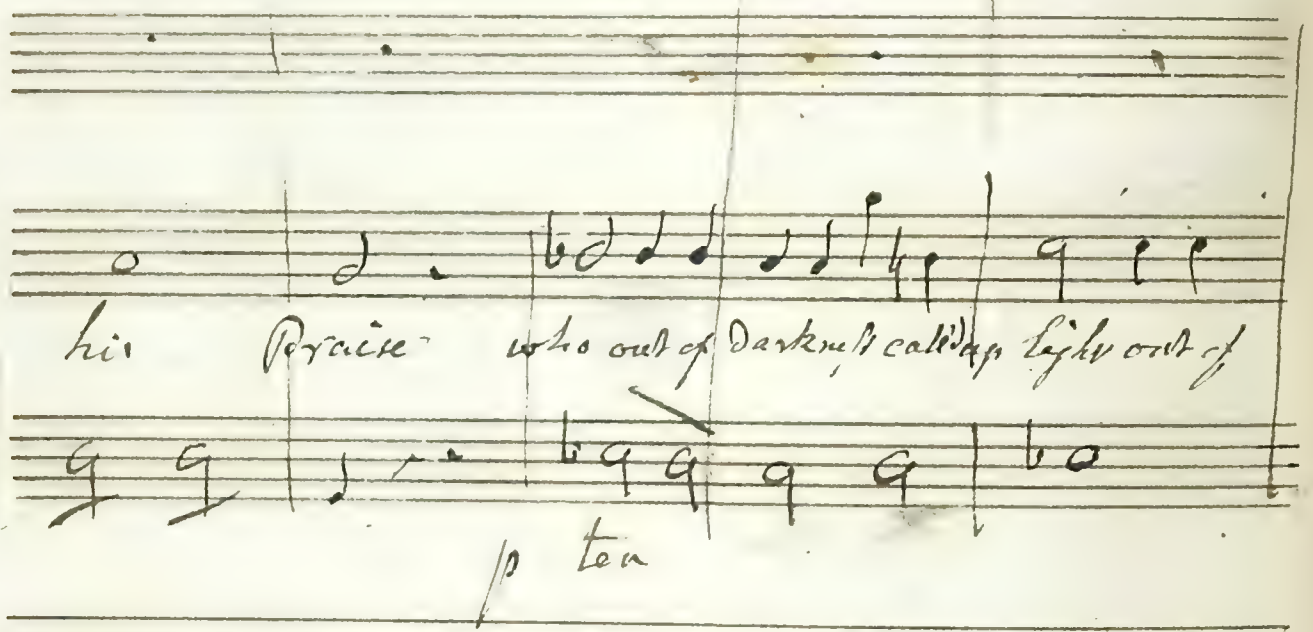 his Praise who out of Darkness call'd up light out of
p ten